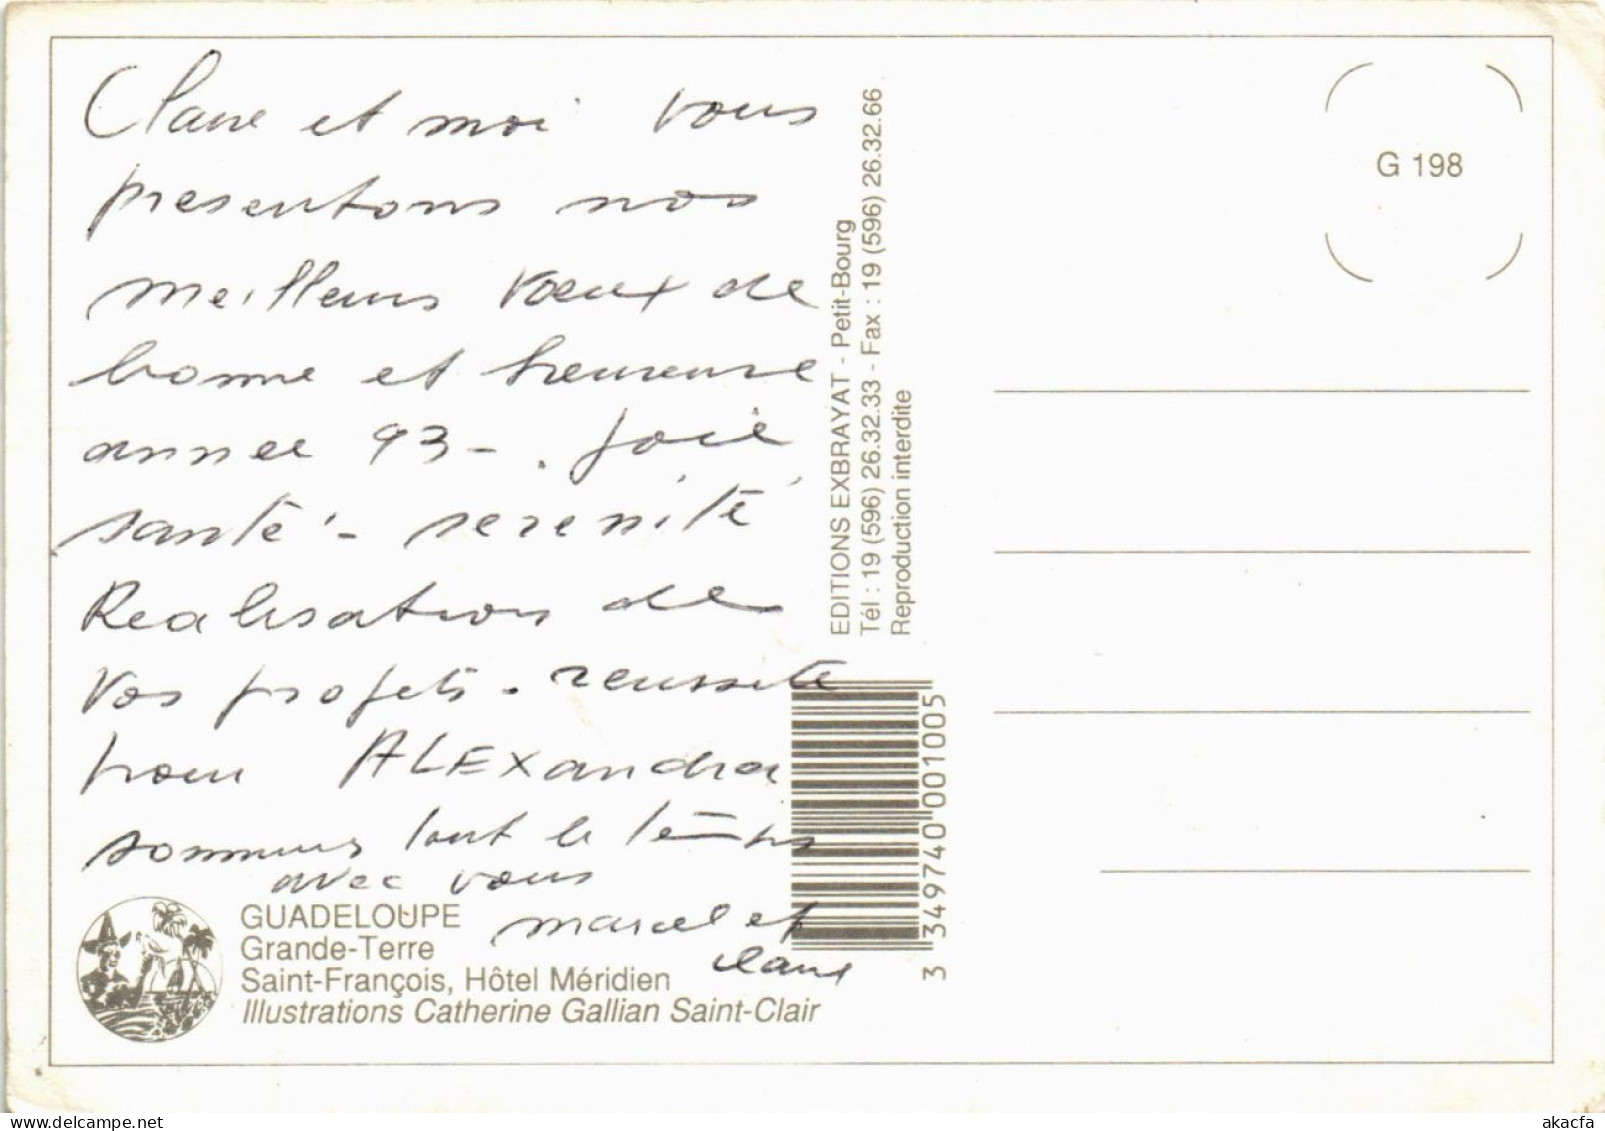 Claire et moi vous
presentons nos
meilleurs vœux de
bonne et heureuse
annee 93 - . joie
santé - serenité
Realisation de
vos projets - reussite
pour ALEXandra
sommes tout le temps
avec vous
marcel et
claire
GUADELOUPE
Grande-Terre
Saint-François, Hôtel Méridien
Illustrations Catherine Gallian Saint-Clair
EDITIONS EXBRAYAT - Petit-Bourg
Tél : 19 (596) 26.32.33 - Fax : 19 (596) 26.32.66
Reproduction interdite
3 349740 001005
G 198
akacfa